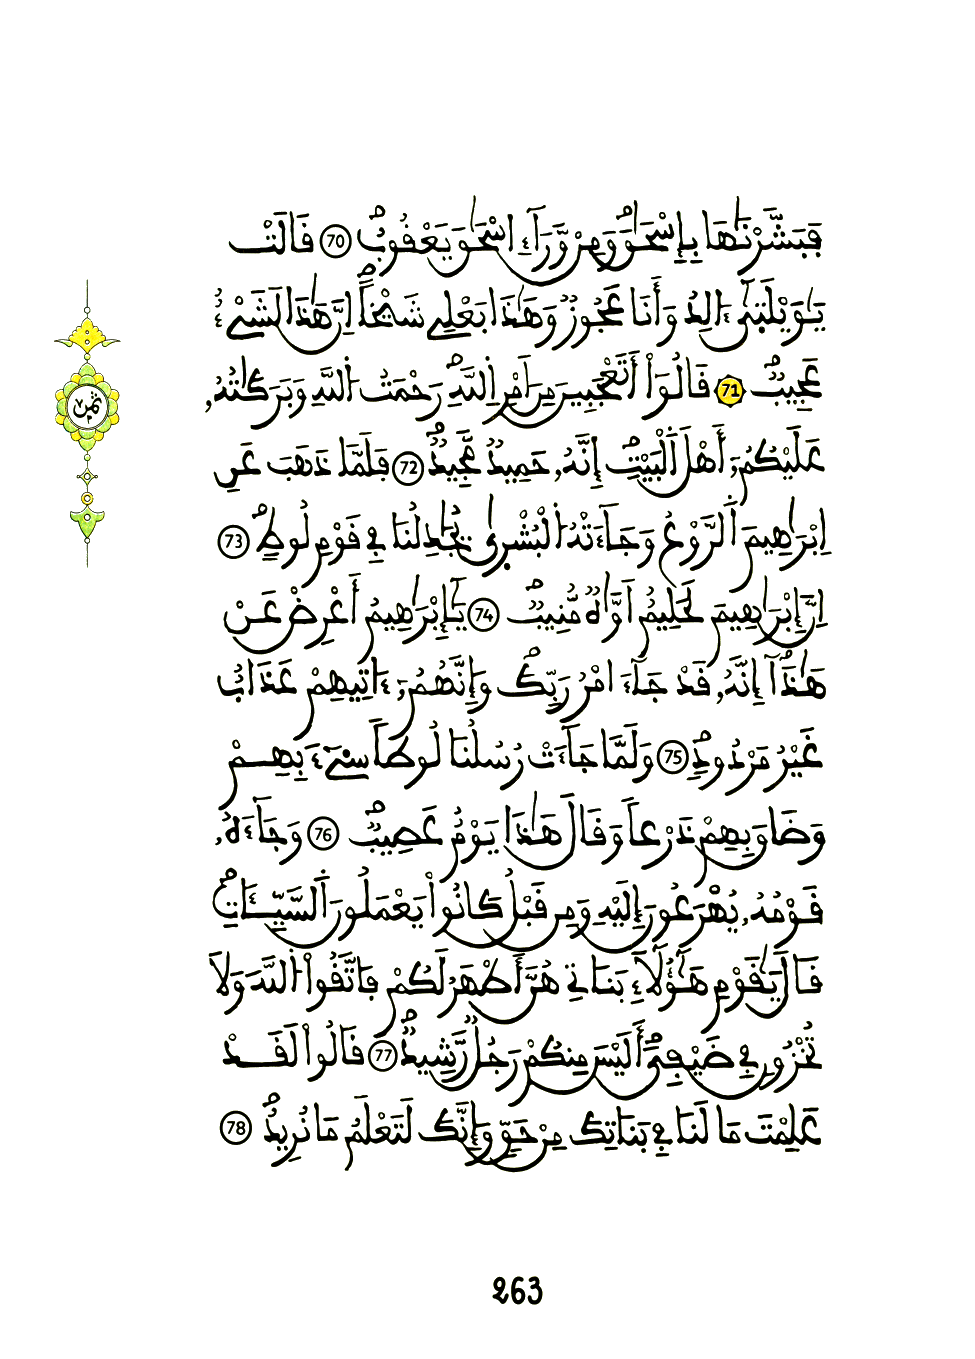 فَبَشَّرْنَٰهَا بِإِسْحَٰقَ وَمِنْ وَّرَآءِ اسْحَٰقَ يَعْقُوبُ 70 قَالَتْ
يَٰوَيْلَتَىٰٓ ءَالِدُ وَأَنَا عَجُوزٌ وَهَٰذَا بَعْلِے شَيْخاً اِنَّ هَٰذَا لَشَےْءٌ
عَجِيبٌ 71 قَالُوٓاْ أَتَعْجَبِينَ مِنَ امْرِ اِللَّهِ رَحْمَتُ اُللَّهِ وَبَرَكَٰتُهُۥ
عَلَيْكُمُۥٓ أَهْلَ اَلْبَيْتِ إِنَّهُۥ حَمِيدٌ مَّجِيدٌ 72 فَلَمَّا ذَهَبَ عَنِ
اِبْرَٰهِيمَ اَلرَّوْعُ وَجَآءَتْهُ اُلْبُشْرٜىٰ يُجَٰدِلُنَا فِے قَوْمِ لُوطٍ 73
اِنَّ إِبْرَٰهِيمَ لَحَلِيمٌ اَوَّٰهٌ مُّنِيبٌ 74 يَٰٓإِبْرَٰهِيمُ أَعْرِضْ عَنْ
هَٰذَآ إِنَّهُۥ قَدْ جَآءَ امْرُ رَبِّكَ وَإِنَّهُمُۥٓ ءَاتِيهِمْ عَذَابٌ
غَيْرُ مَرْدُودٍ 75 وَلَمَّا جَآءَتْ رُسُلُنَا لُوطاً سِےٓءَ بِهِمْ
وَضَاقَ بِهِمْ ذَرْعاً وَقَالَ هَٰذَا يَوْمٌ عَصِيبٌ 76 وَجَآءَهُۥ
قَوْمُهُۥ يُهْرَعُونَ إِلَيْهِ وَمِن قَبْلُ كَانُواْ يَعْمَلُونَ اَلسَّيِّـَٔاتِ
قَالَ يَٰقَوْمِ هَٰٓؤُلَآءِ بَنَاتِے هُنَّ أَطْهَرُ لَكُمْ فَاتَّقُواْ اُللَّهَ وَلَا
تُخْزُونِ فِے ضَيْفِيَ أَلَيْسَ مِنكُمْ رَجُلٌ رَّشِيدٌ 77 قَالُواْ لَقَدْ
عَلِمْتَ مَا لَنَا فِے بَنَاتِكَ مِنْ حَقٍّ وَإِنَّكَ لَتَعْلَمُ مَا نُرِيدُ 78
ثمن
263